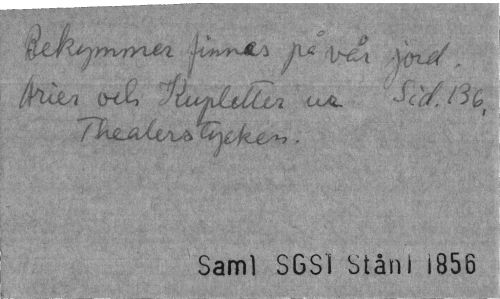 Bekymmer finnas på vår jord.
Arier och Kupletter ur Sid. 136,
Theaterstycken.
Saml SGS1 Stånl 1856